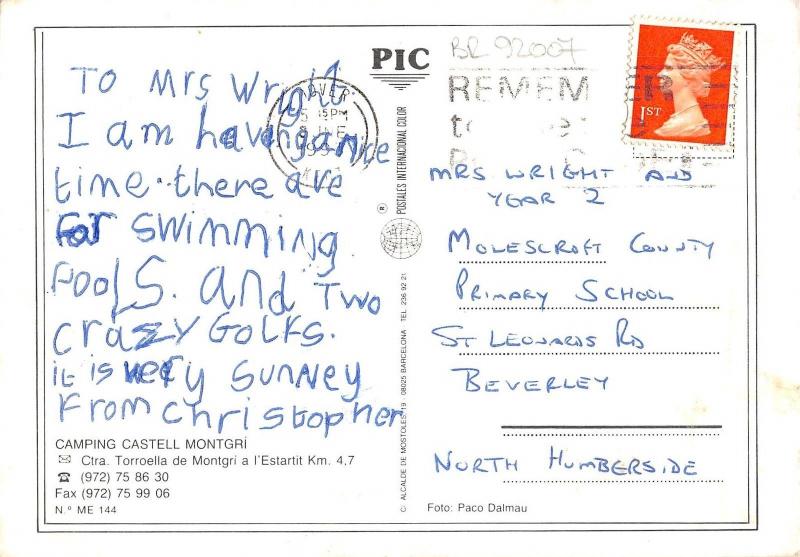 To Mrs Wright.
I am haveing a nice
time. there are
for swimming
Pools. and Two
crazy Golfs.
it is very sunney
From christopher
CAMPING CASTELL MONTGRÍ
Ctra. Torroella de Montgrí a l'Estartit Km. 4,7
(972) 75 86 30
Fax (972) 75 99 06
N.º ME 144
PIC
POSTALES INTERNACIONAL COLOR
®
C/. ALCALDE DE MOSTOLES, 19 08025 BARCELONA TEL. 236 92 21
BR 92007
REMEMBER
1ST
MRS WRIGHT AND
YEAR 2
MOLESCROFT COUNTY
PRIMARY SCHOOL
ST LEONARDS RD
BEVERLEY
NORTH HUMBERSIDE
Foto: Paco Dalmau